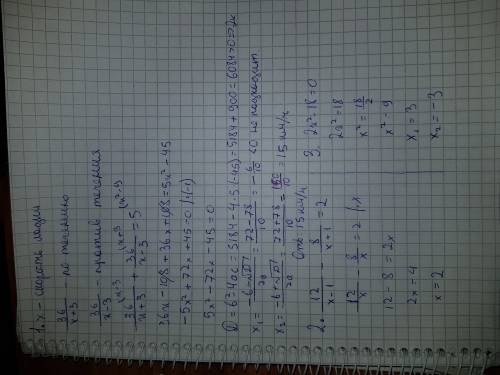 1. x - скорость лодки
36/(x+3) по течению
36/(x-3) - против течения
36/(x+3) + 36/(x-3) = 5
36x - 108 + 36x + 108 = 5x² - 45
-5x² + 72x + 45 = 0 | ·(-1)
5x² - 72x - 45 = 0
= 5184 - 4·5·(-45) = 5184 + 900 = 6084 > 0 => 2к
x₁ = (-b-√D)/2a = (72-78)/10 = -6/10 < 0 не подходит
x₂ = (-b+√D)/2a = (72+78)/10 = 150/10 = 15 км/ч
Отв: 15 км/ч
2. 12/(x-1) - 8/(x-1) = 2
12/x - 8/x = 2 | ·x
12 - 8 = 2x
2x = 4
x = 2
3. 2x² - 18 = 0
2x² = 18
x² = 18/2
x² - 9
x₁ = 3
x₂ = -3